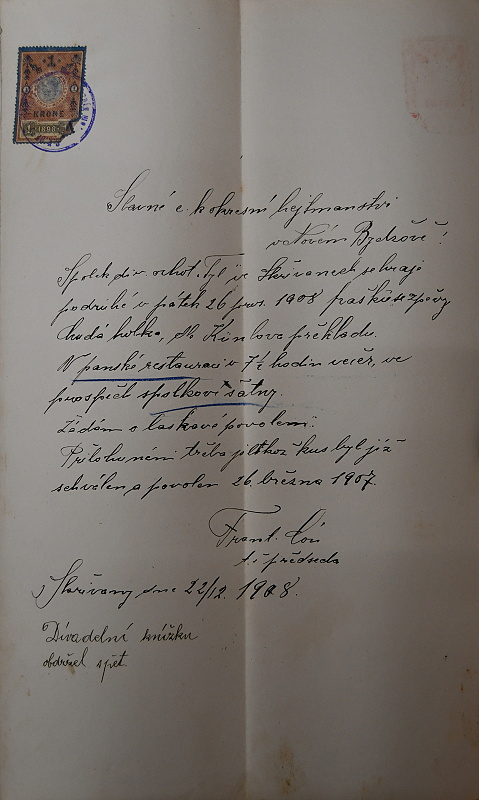 1
KRONE
1898
Slavné c. k. okresní hejtmanství
v Novém Bydžově!
Spolek div. ochot. Tyl ve Skřivanech sehraje
podruhé v pátek 26 pros. 1908 frašku se zpěvy
Chudá holka, dle Kinlova překladu.
V panské restauraci v 7½ hodin večer, ve
prospěch spolkové šatny.
Žádám o laskavé povolení.
Přílohu není třeba jelikož kus byl již
schválen a povolen 26. března 1907.
Frant.
t. č. předseda
Skřivany dne 22/12. 1908.
Divadelní knížku
obdržel zpět.